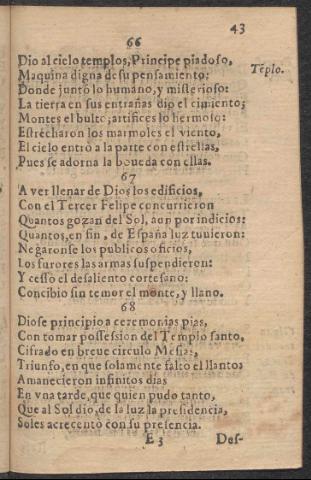 43
66
Dio al cielo templos, Principe piadoso,
Tẽplo.
Maquina digna de su pensamiento:
Donde juntò lo humano, y misterioso:
La tierra en sus entrañas dio el cimiento;
Montes el bulto; artifices lo hermoso:
Estrecharon los marmoles el viento,
El cielo entrò a la parte con estrellas,
Pues se adorna la boueda con ellas.
67
A ver llenar de Dios los edificios,
Con el Tercer Felipe concurrieron
Quantos gozan del Sol, aun por indicios:
Quantos, en fin, de España luz tuuieron:
Negaronse los publicos oficios,
Los furores las armas suspendieron:
Y cessò el desaliento cortesano:
Concibio sin temor el monte, y llano.
68
Diose principio a ceremonias pias,
Con tomar possession del Templo santo,
Cifrado en breue circulo Mesias,
Triunfo, en que solamente faltò el llanto:
Amanecieron infinitos dias
En vna tarde, que quien pudo tanto,
Que al Sol dio, de la luz la presidencia,
Soles acrecentò con su presencia.
E 3
Des-